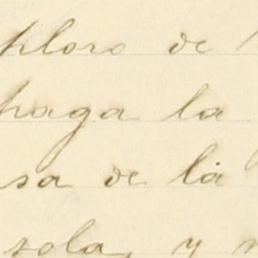 ploro de
haga la
sa de la
sola, y